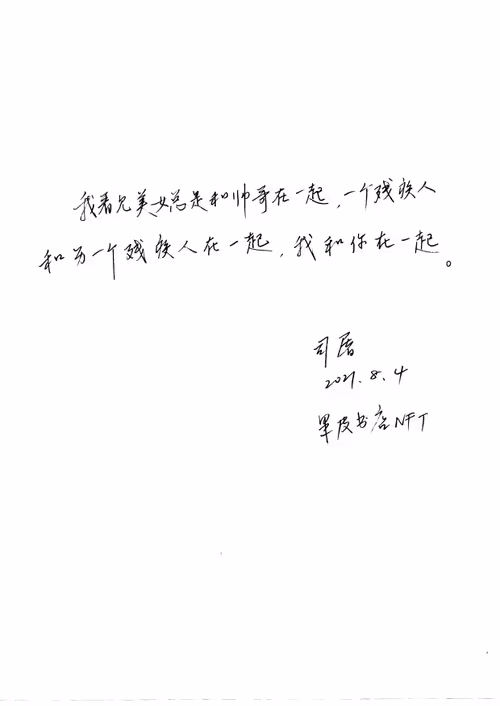 我看见美女总是和帅哥在一起，一个残疾人
和另一个残疾人在一起，我和你在一起。
司屠
2021.8.4
果皮书店NFT